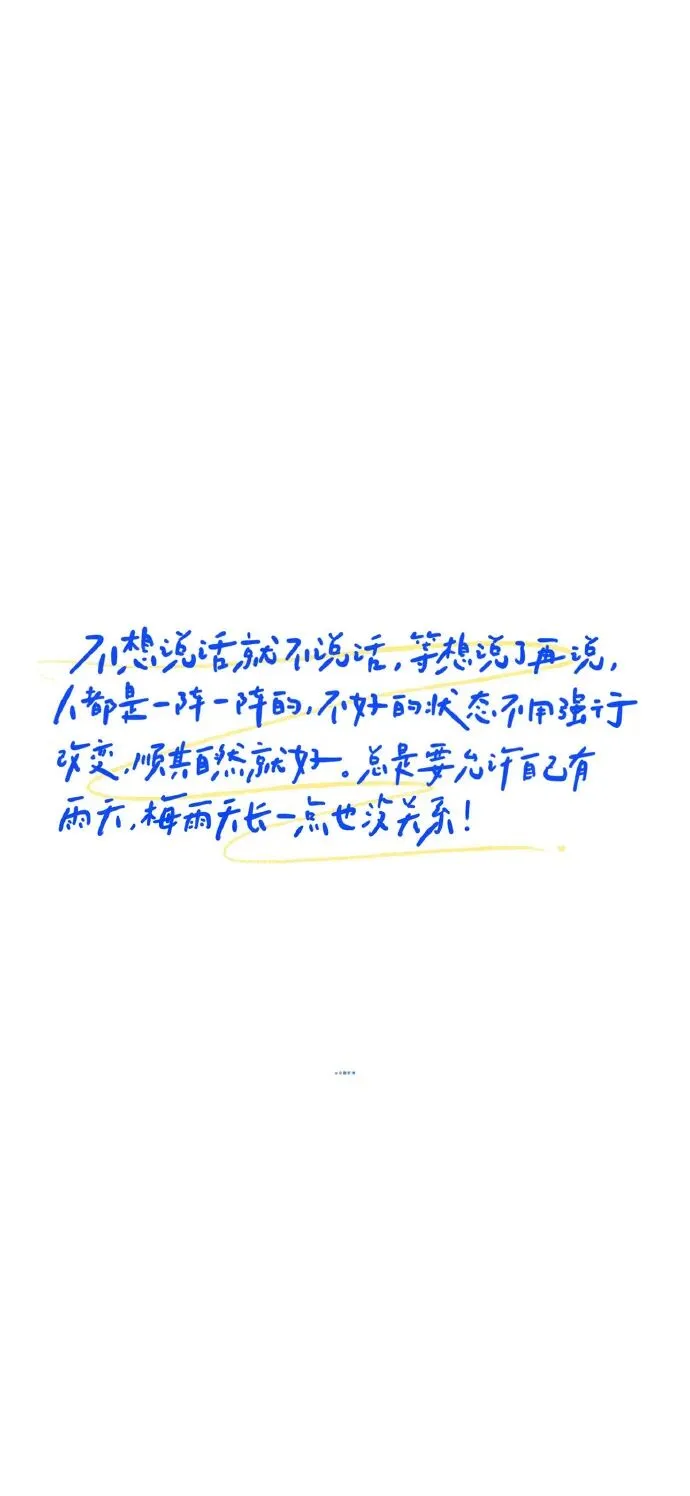 不想说话就不说话,等想说了再说,
人都是一阵一阵的,不好的状态不用强行
改变,顺其自然就好。总是要允许自己有
雨天,梅雨天长一点也没关系!